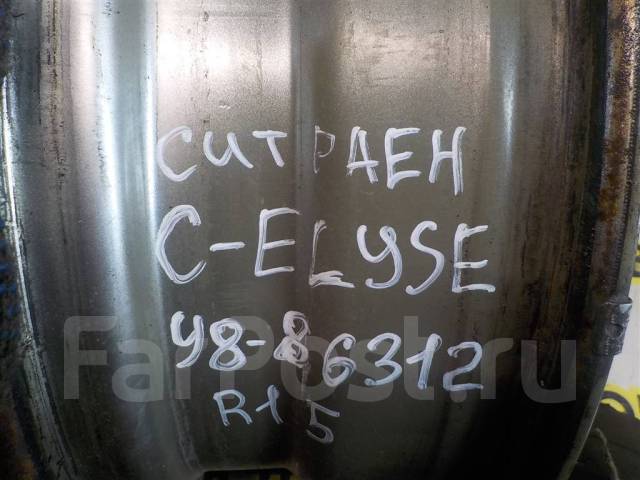 СИТРАЕН
C-ELYSE
У8-86312
R15
FarPost.ru